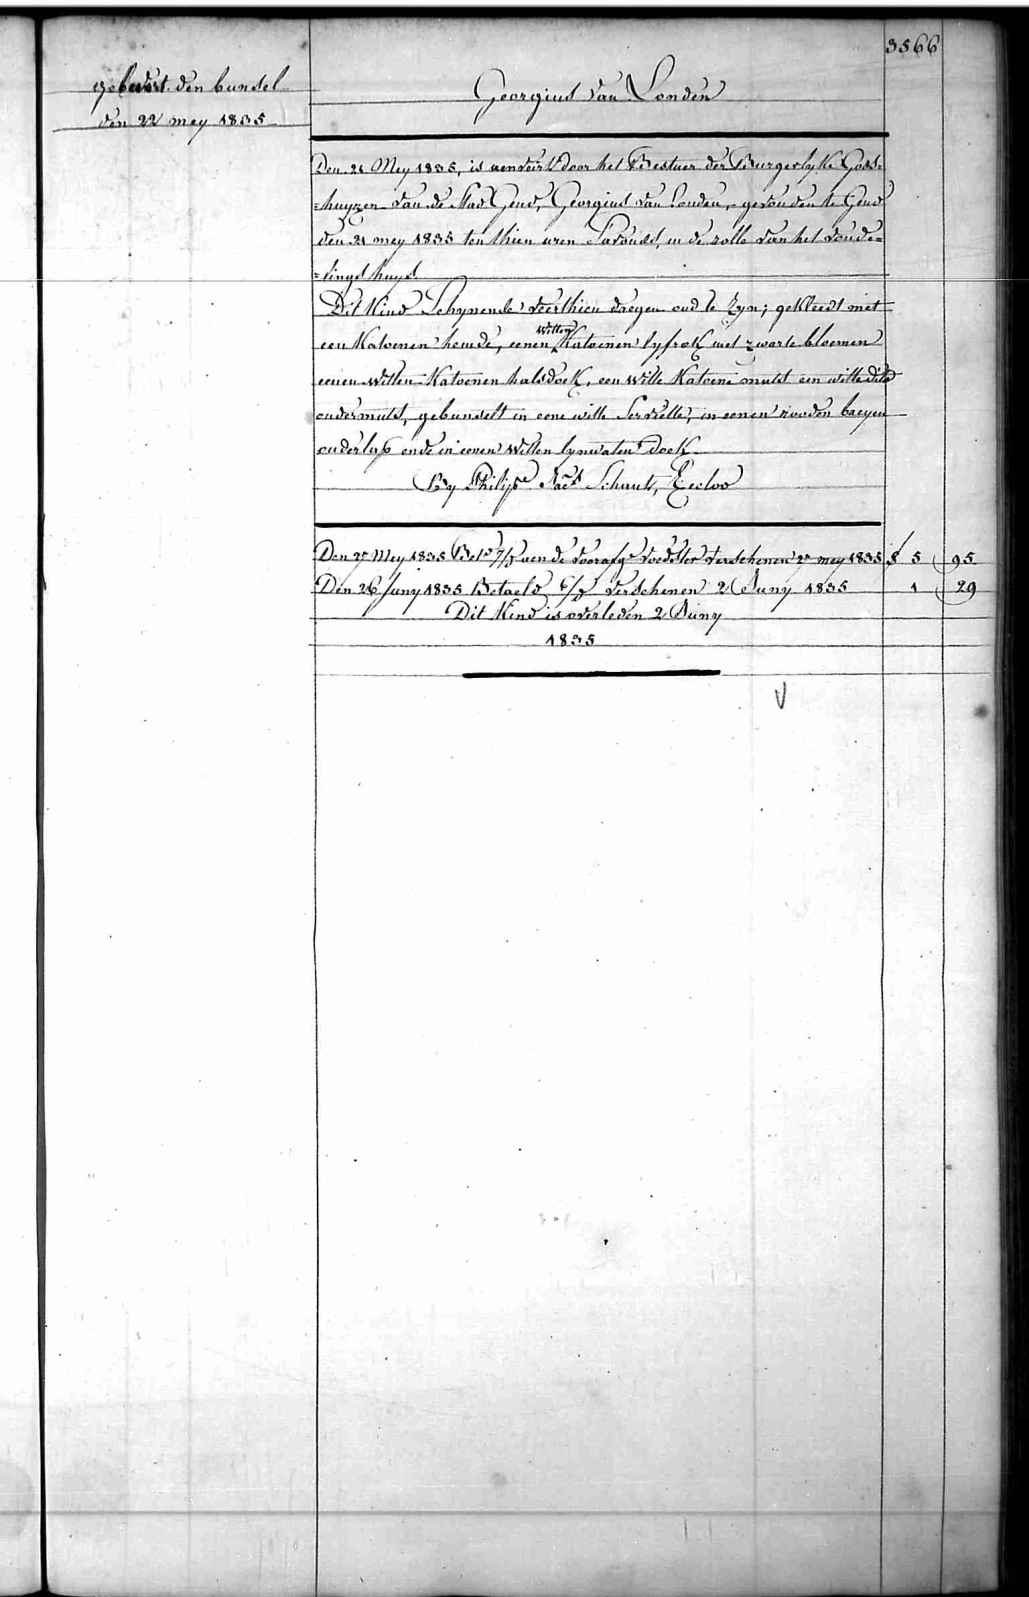 3566
gelevert den bundel
den 22 mey 1835
Georgius van Londen
Den 21 Mey 1835, is aenveird door het Bestuer der Burgerlyke Gods=
=huyzen van de Stad Gend, Georgius van Londen, gevonden te Gend
den 21 mey 1835 ten thien uren s'avonds, in de rolle van het vonde=
=lings huys.
Dit Kind Schynende veerthien daegen oud te zyn; gekleed met
een Katoenen hemde, eenen witten Katoenen lyfrok met zwarte bloemen
eenen witten Katoenen halsdoek, een witte Katoene muts een witte dito
ondermuts, gebundelt in eene witte Serviette, in eenen rooden baeyen
onderlap ende in eenen witten lynwaten doek.
By Philippe Schaut, Eecloo
Den 27 Mey 1835 Bet. aen de voorafge voedster verschenen 27 mey 1835 5 95
Den 26 Juny 1835 Betaeld verschenen 2 Juny 1835 1 29
Dit Kind is overleden 2 Juny
1835